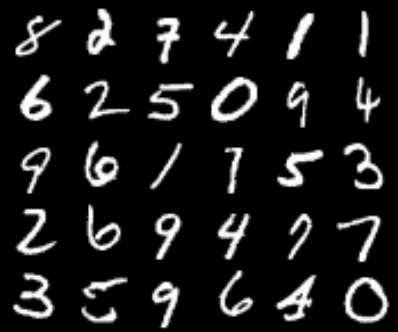 8 2 7 4 1 1
6 2 5 0 9 4
9 6 1 7 5 3
2 6 9 4 7 7
3 5 9 6 4 0